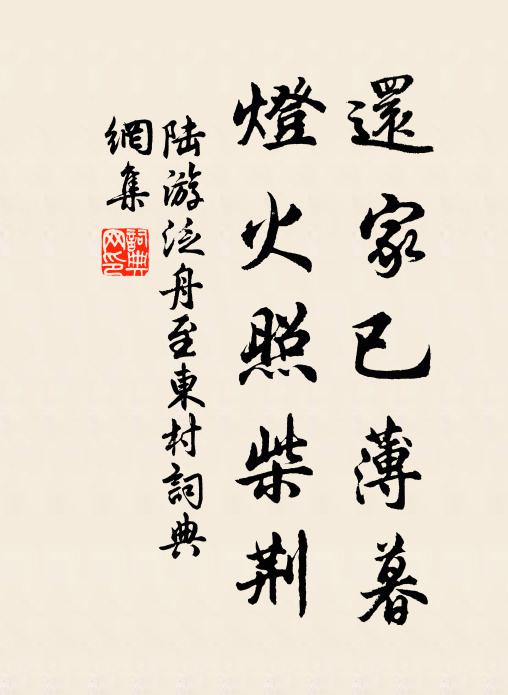 還家已薄暮
燈火照柴荆
陆游泛舟至東村詞典
網集
詞典
网印